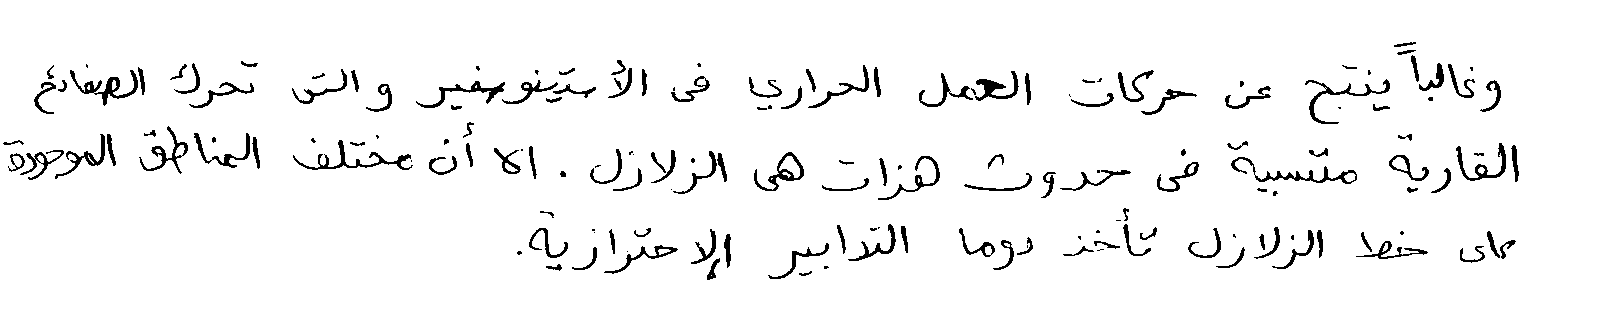 وغالباً ينتج عن حركات الحمل الحراري في الأستينوسفير والتى تحرك الصفائح
القارية متسببة في حدوث هزات هي الزلازل. الا أن مختلف المناطق الموجودة
على خط الزلازل تأخذ دوما التدابير الإحترازية.